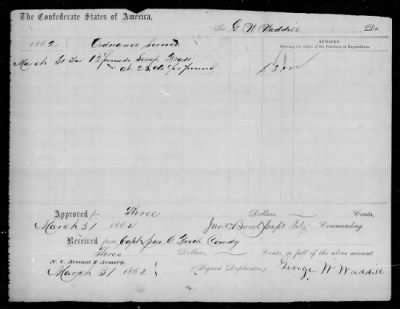 The Confederate States of America,
To G W Waddill Dr.
REMARKS.
1862 Ordnance Service
March 31 For 12 pounds Scrap Brass
at 25 cts per pound $3.00
Approved for Three Dollars Cents,
March 31 1862 Capt Commanding
Received from Capt C Comdg
Three Dollars Cents, in full of the above account
N. C. Arsenal & Armory,
March 31 1862 (Signed Duplicates) George W Waddill